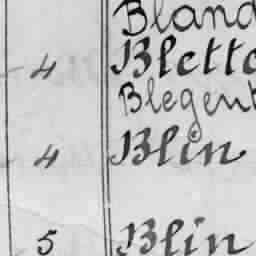 Bland
4 Blette
Blegent
4 Blin
5 Blin